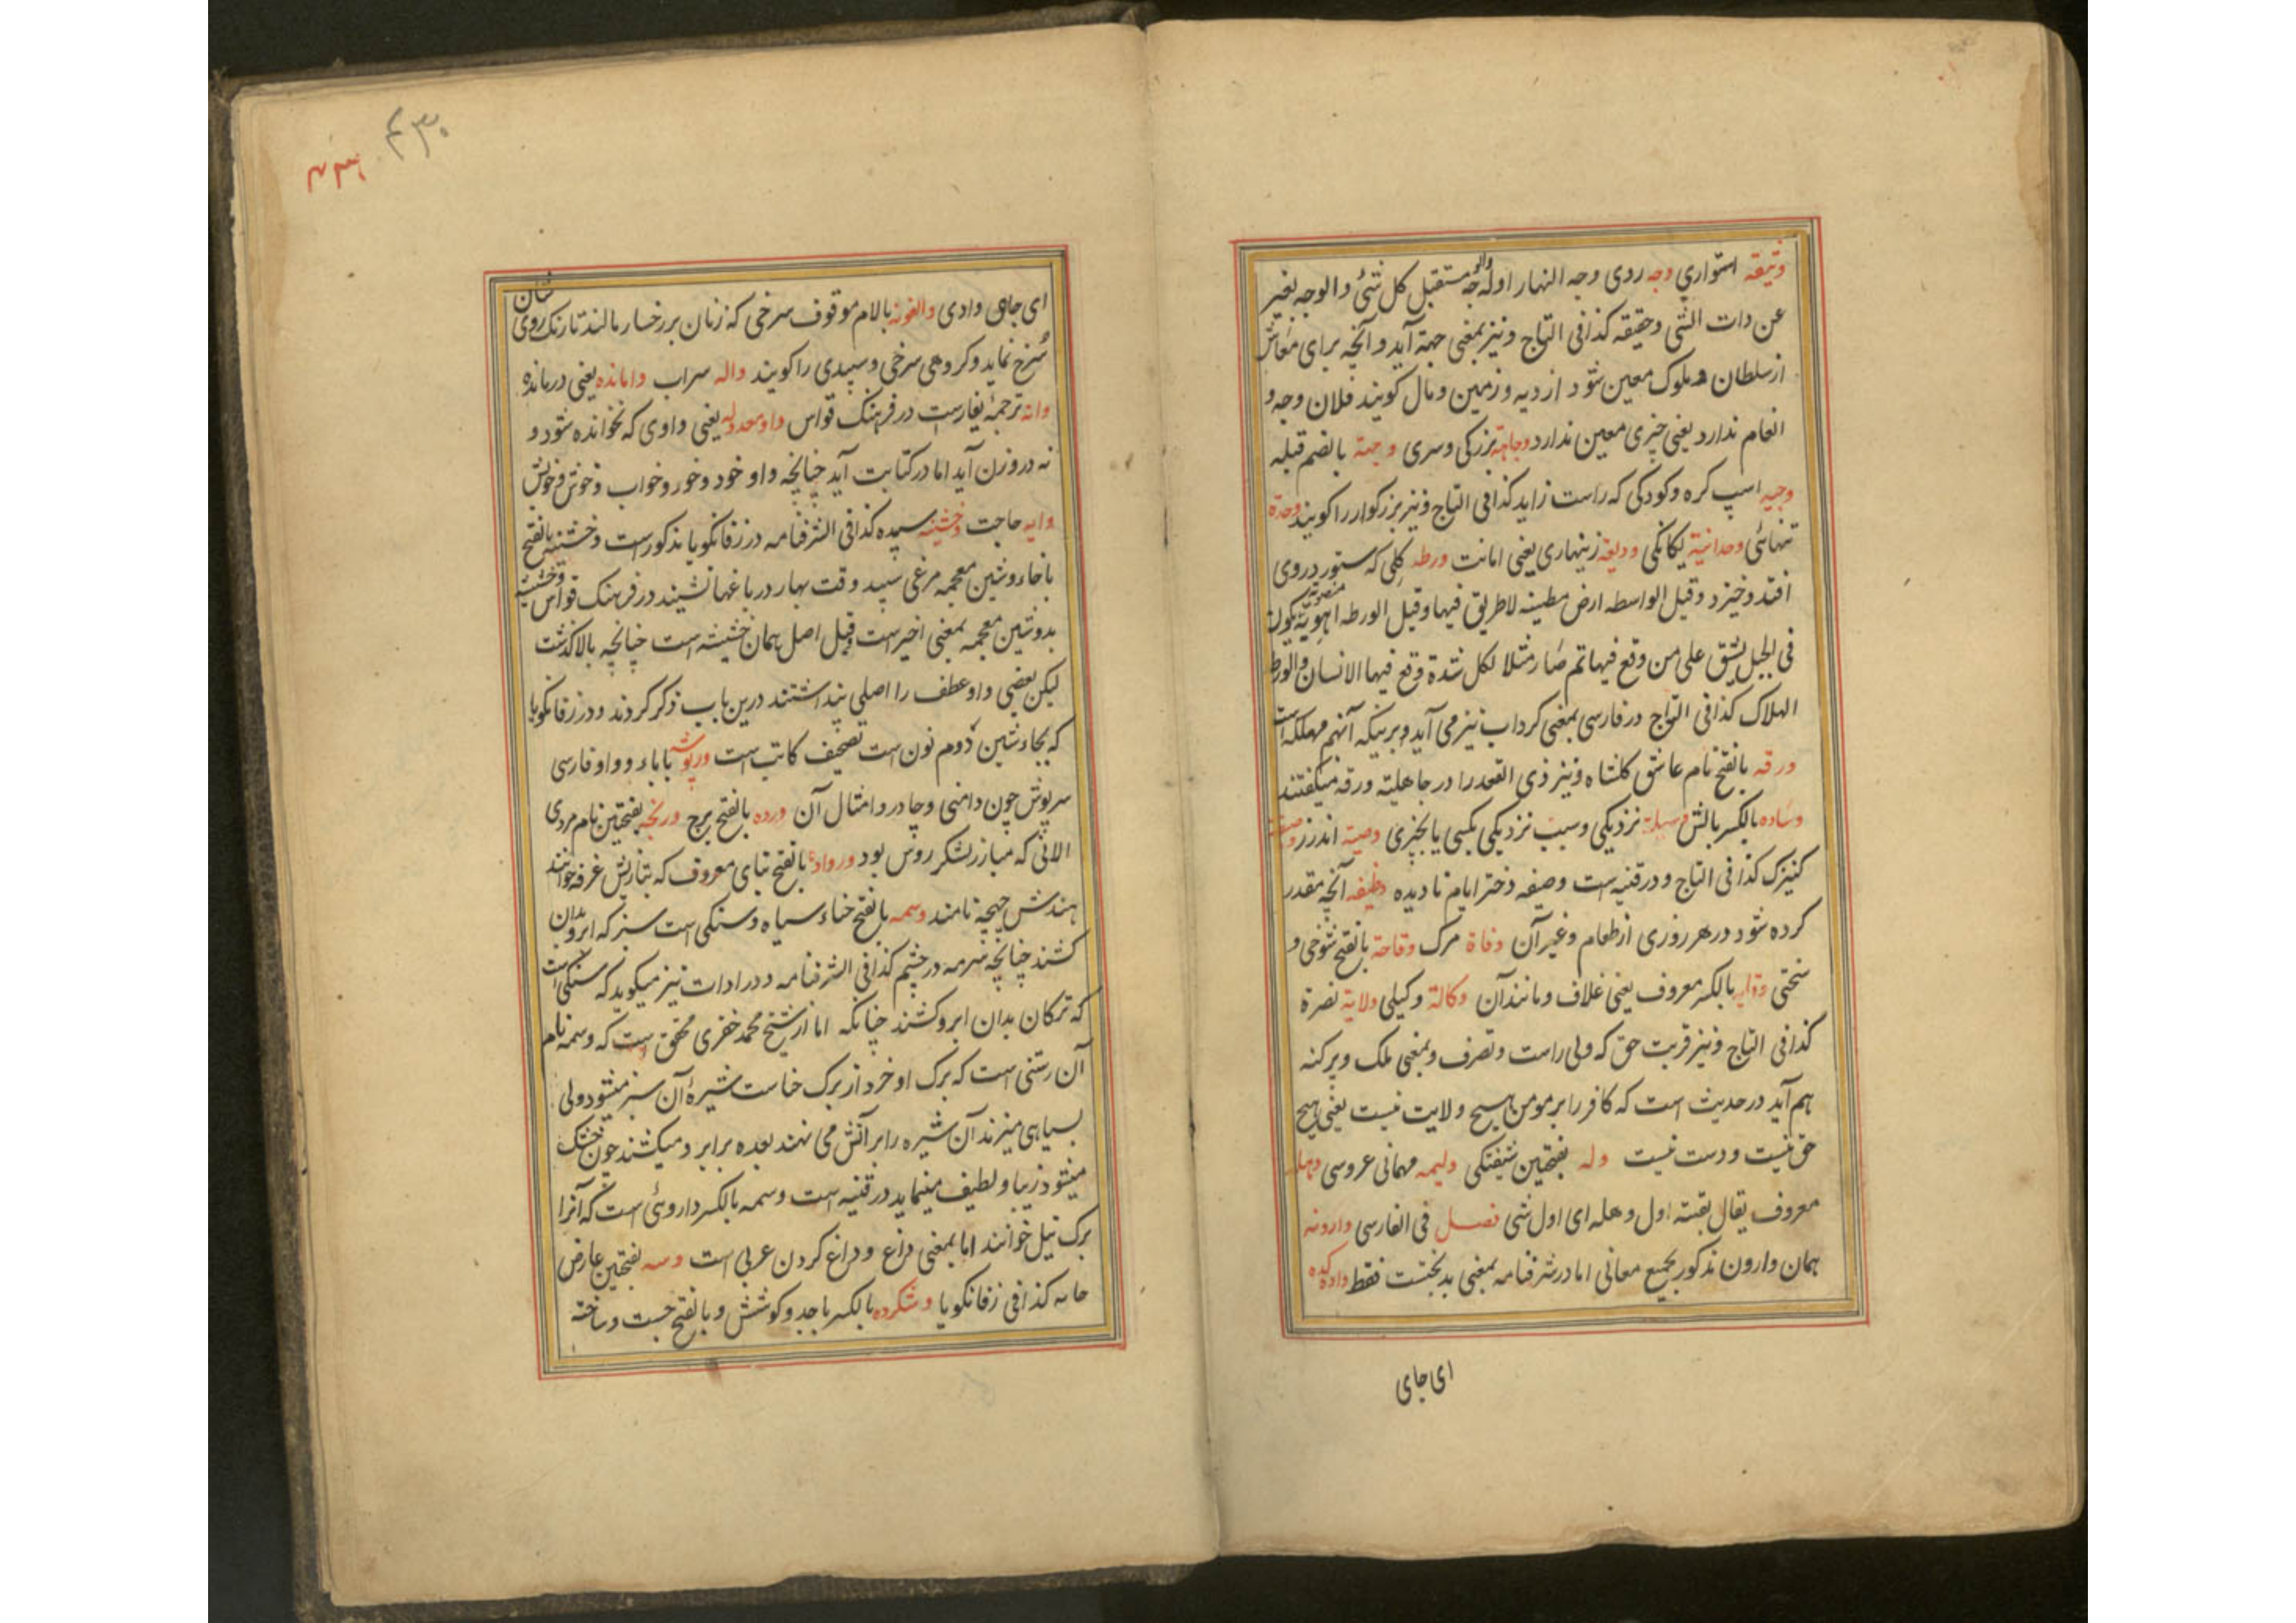 وثیقه استواری وجه روی وجه النهار اوله والوجه مستقبل كل شئ والوجه یعبر
عن ذات الشی وحقیقه كذا فی التاج و نیز بمعنی جهة آید و آنچه برای معاش
از سلطان و ملوک معین شود از دیه و زمین و مال کویند فلان وجه و
انعام ندارد یعنی چیزی معین ندارد وجاهة بزرکی و سری وجهة بالضم قبله
وجیه اسپ کره و کودکی که راست زاید کذا فی التاج و نیز بزرکوار را کویند وحدة
تنهائی وحدانیة یکانکی ودیعة زینهاری یعنی امانت ورطه کلی که ستور در وی
افتد و خیزد و قیل الواسطه ارض مطینه لا طریق فیها و قیل الورطه اهویة منصوبة یکون
فی الجبل یشق علی من وقع فیها ثم صار مثلا لکل شدة وقع فیها الانسان والورطة
الهلاک کذا فی التاج در فارسی بمعنی کرداب نیز می آید و برینکه آنهم مهلکه است
ورقه بالفتح نام عاشق کلشاه و نیز ذی القعد را در جاهلیة ورقه میکفتند
وساده بالکسر بالش وسیلة نزدیکی و سبب نزدیکی بکسی یا بچیزی وصیة اندرز وصیفة
کنیزک کذا فی التاج و در قنیه است وصیفه دختر ایام نادیده وظیفه آنچه مقدر
کرده شود در هر روزی از طعام و غیر آن وفاة مرک وقاحة بالفتح شوخی و
سختی وقایه بالکسر معروف یعنی غلاف و مانند آن وکالة وکیلی ولایة نصرة
کذا فی التاج و نیز قربت حق که ولی راست و تصرف و بمعنی ملک و پرکنه
هم آید در حدیث است که کافر را بر مومن هیچ ولایت نیست یعنی هیچ
حق نیست و دست نیست وله بفتحتین شیفتکی ولیمه مهمانی عروسی وهله
معروف یقال لقیته اول وهله ای اول شی فصل فی الفارسی وارونه
همان وارون مذکور بجمیع معانی اما در شرفنامه بمعنی بدبختست فقط وادکده
ای جای
۴۳۰
۴۳۱
ای جای وادی والغونه بالام موقوف سرخی که زنان بر رخسار مالند تا رنک روی شان
سرخ نماید و کروهی سرخی و سپیدی را کویند واله سراب وامانده یعنی درمانده
وانه ترجمهٔ یفارست در فرهنک قواس واو معدوله یعنی واوی که نخوانده شود و
نه در وزن آید اما در کتابت آید چنانچه واو خود و خور و خواب و خوش و خویش
وایه حاجت وخشینه سپیده کذا فی الشرفنامه در زفانکویا مذکور است وخشینه بالفتح
با خاء و شین معجمه مرغی سپید وقت بهار در باغها نشیند در فرهنک قواس وخشیشه
بدو شین معجمه بمعنی اخیر است و قیل اصل همان خشیشه است چنانچه بالا کذشت
لیکن بعضی واو عطف را اصلی پنداشتند درین باب ذکر کردند و در زفانکویا
که بجاء شین دوم نون است تصحیف کاتب است ورپوشه با باء و واو فارسی
سرپوش چون دامنی و چادر و امثال آن ورده بالفتح برج ورنجه بفتحتین نام مردی
الانی که مبارز لشکر روس بود ورواده بالفتح بنای معروف که بتازیش غرفه خوانند
هندش چهجه نامند وسمه بالفتح حناء سیاه و سنکی است سبز که ابرو بدان
کشند چنانچه سرمه در چشم کذا فی الشرفنامه و در ادات نیز میکوید که سنکی است
که ترکان بدان ابرو کشند چنانکه اما از شیخ محمد خضری محقق است که وسمه نام
آن رستنی است که برک او خرد از برک حناست شیرهٔ آن سبز میشود ولی
بسیاهی میزند آن شیره را بر آتش می نهند بعده بر ابرو میکشند چون خشک
میشود زیبا و لطیف مینماید در قنیه است وسمه بالکسر داروئی است که آنرا
برک نیل خوانند اما بمعنی داغ و داغ کردن عربی است وسه بفتحتین عارض
کذا فی زفانکویا وشکرده بالکسر با جد و کوشش و بالفتح چست و ساخته